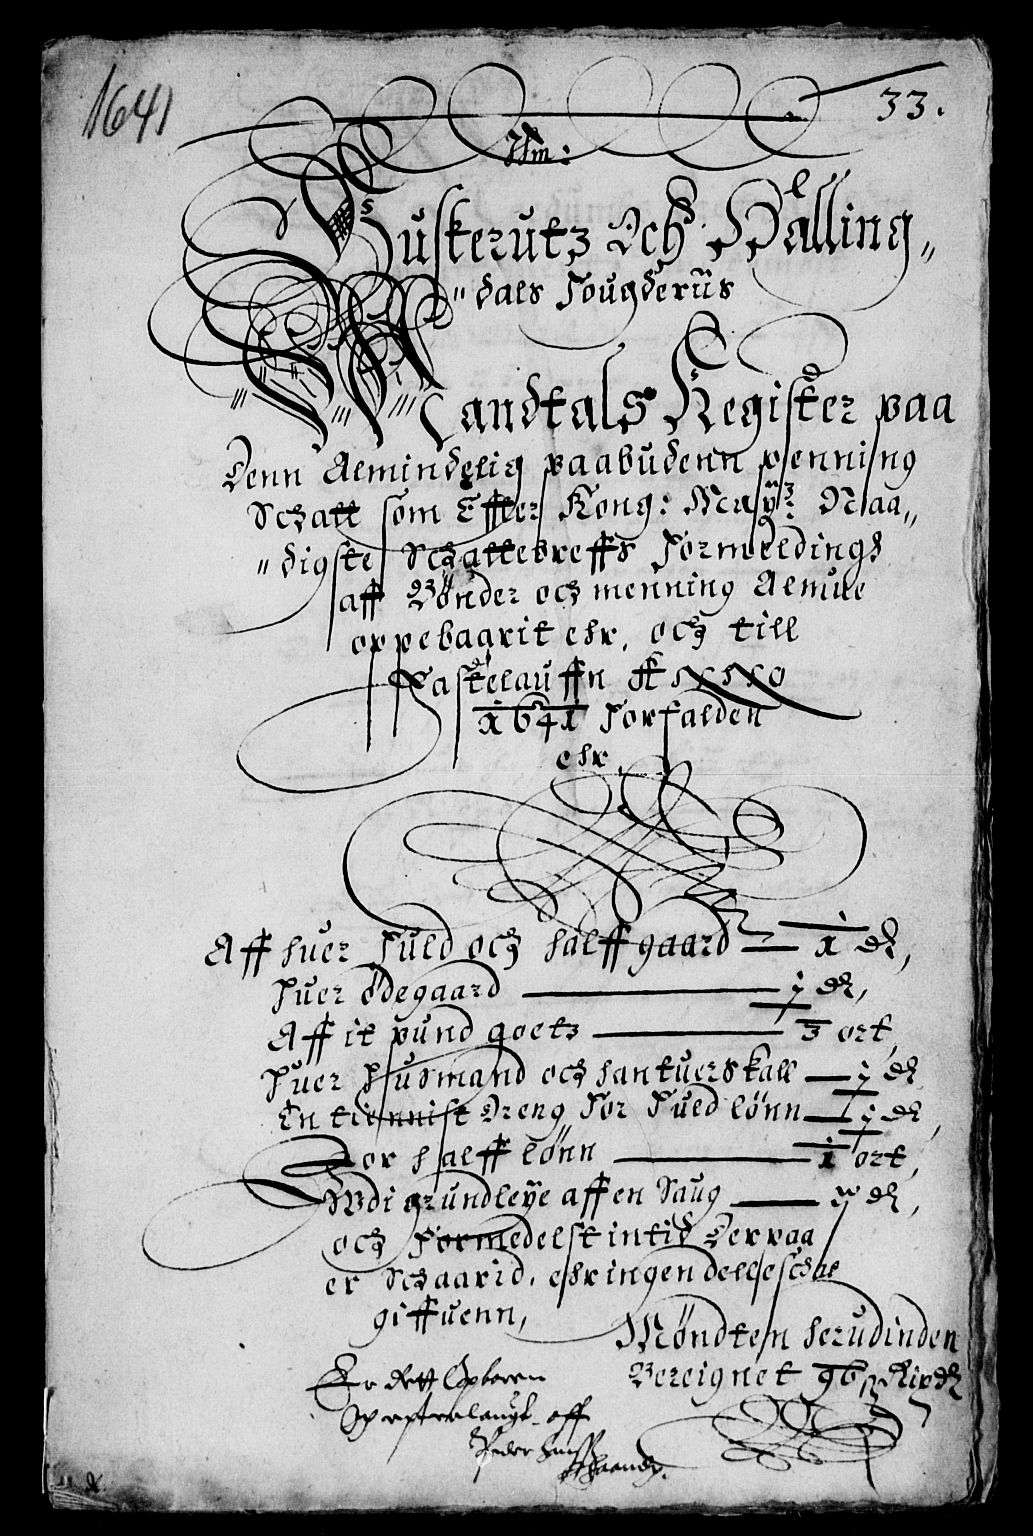 1641
33.
Buskerutz Och Halling„
„dals Fougderiis
Mandtals Register paa
Denn Almindelig paabudenn penning
Schatt som Effter Kong: May: Naa„
„digste Schattebreffs Formeldingh
aff Bønder och menning Almue
oppebaarit ehr, och till
Fastelauffn
1641 Forfalden
ehr
Aff huer Fuld och halff gaard — 1 dr,
Huer Ødegaard — ½ dr,
Aff it pund goetz — 3 ort,
Huer Husmand och hantuerskall — ½ dr
En tiennist Dreng For Fuld lønn — ½ dr,
For halff lønn — 1 ort,
Wdi grundleye aff en Saug — dr,
och Formedelst intid Derpaa
er Schaarid, ehr ingen delles schat
giffuenn,
Møndten herudinden
Bereignet 96 ß Rixdr
Er Rett
aff
Peder